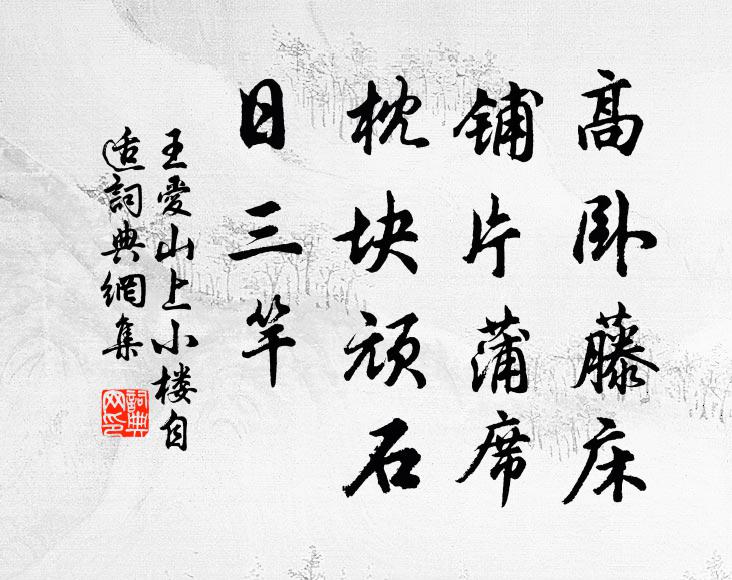 高卧藤床
铺片蒲席
枕块顽石
日三竿
王愛山上小楼自
适詞典網集
詞典
网印